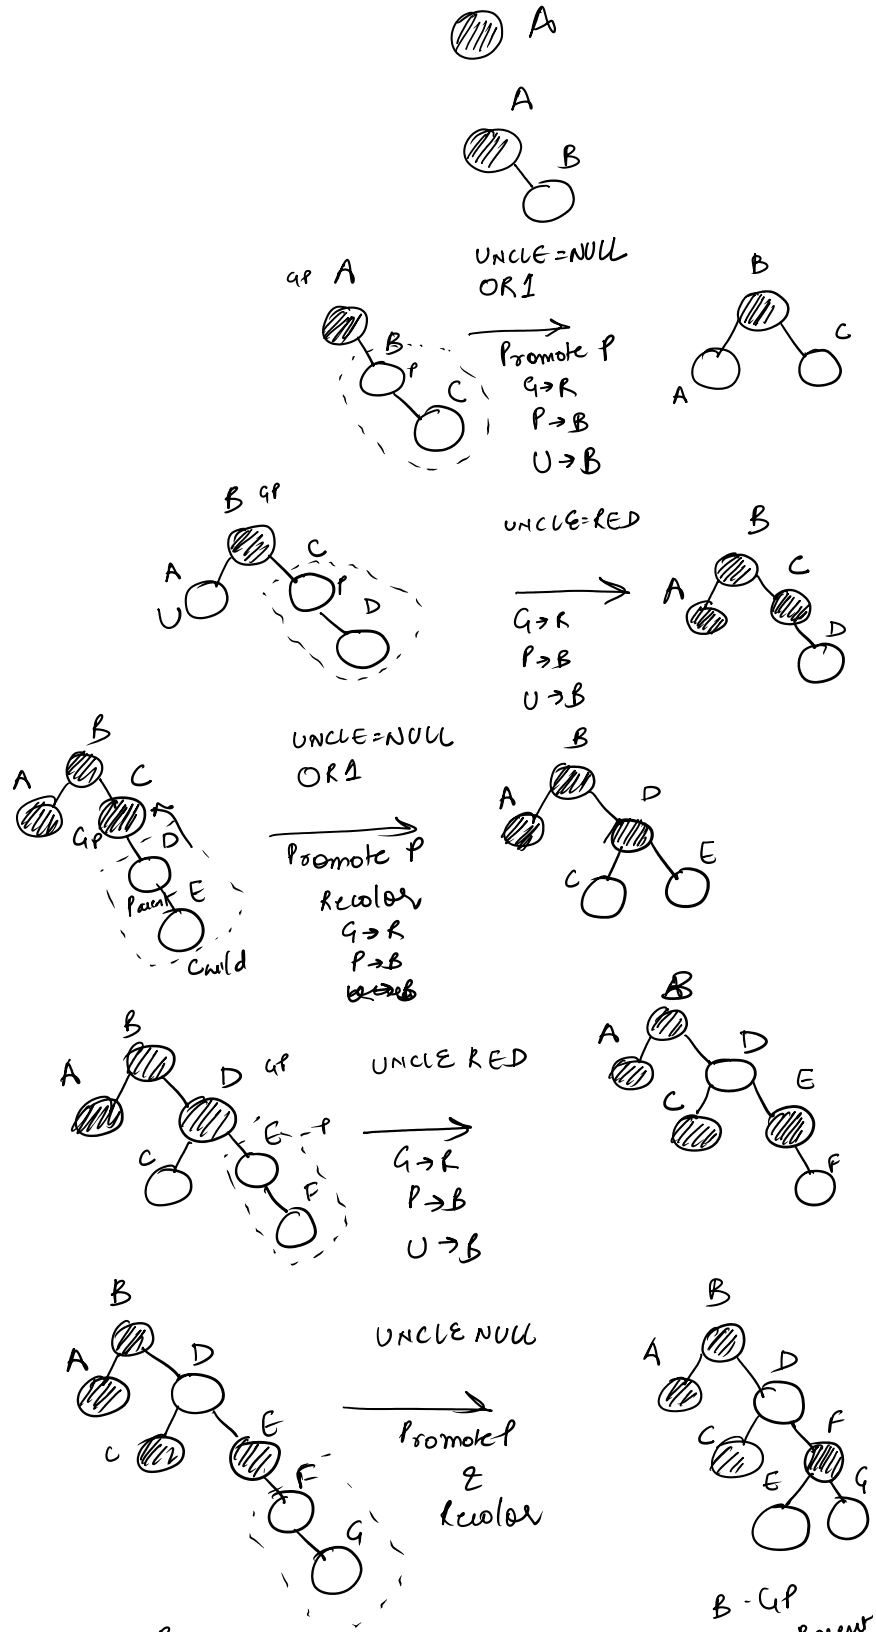 A
A
B
UNCLE=NULL
OR1
GP A
B
P
C
Promote P
G→R
P→B
U→B
B
A
C
B GP
A
U
C
P
D
UNCLE=RED
G→R
P→B
U→B
B
A
C
D
B
A
C
GP
D
Parent
E
Child
UNCLE=NULL
OR1
Promote P
Recolor
G→R
P→B
B
A
D
C
E
B
A
D
GP
C
E
P
F
UNCLE RED
G→R
P→B
U→B
B
A
D
C
E
F
B
A
D
C
E
F
G
UNCLE NULL
Promote P
&
Recolor
B
A
D
C
F
E
G
B - GP
Parent